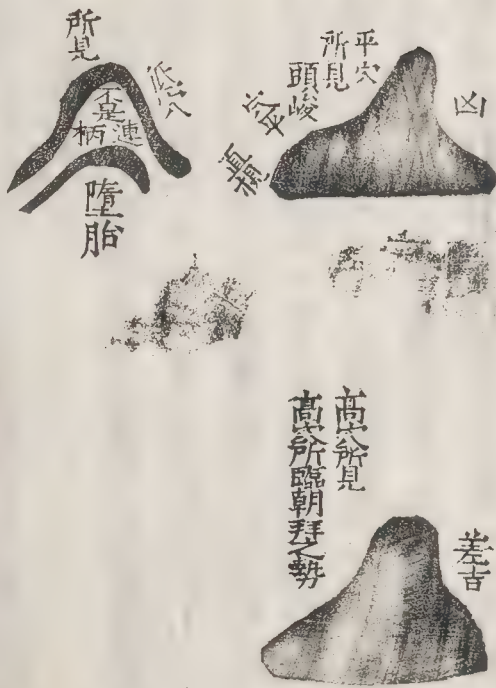 凶
平穴
所見
頭峻
所見
不是
連
柄
墮胎
差吉
高穴所見
高穴所臨朝拜之勢